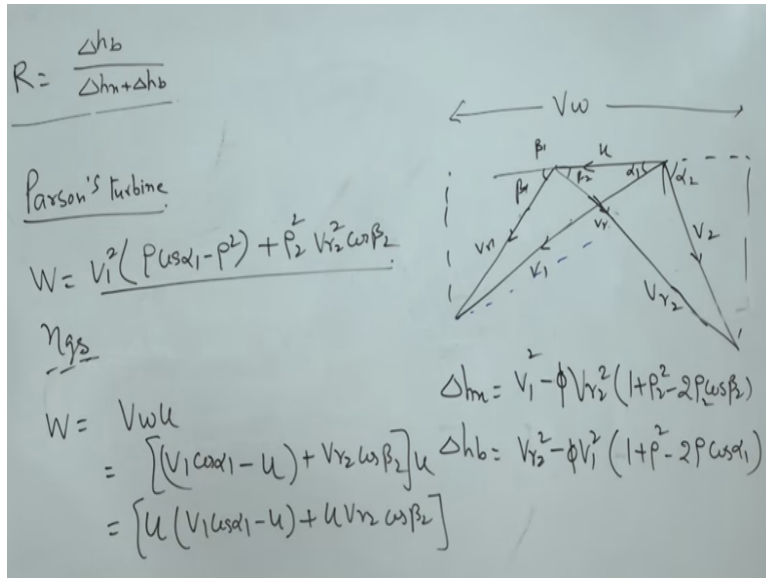 R = Δhb / (Δhn + Δhb)
Parson's turbine
W = V₁² (ρ cosα₁ - ρ²) + ρ₂² Vr₂² cosβ₂
ηgs
W = Vw u
= [(V₁ cosα₁ - u) + Vr₂ cosβ₂] u
= [u (V₁ cosα₁ - u) + u Vr₂ cosβ₂]
Vw
β₁ u
β₁ β₂ α₁ α₂
Vr₁ V₁ Vr V₂
Vr₂
Δhn = V₁² - ϕVr₂² (1 + ρ₂² - 2ρ₂ cosβ₂)
Δhb = Vr₂² - ϕV₁² (1 + ρ² - 2ρ cosα₁)